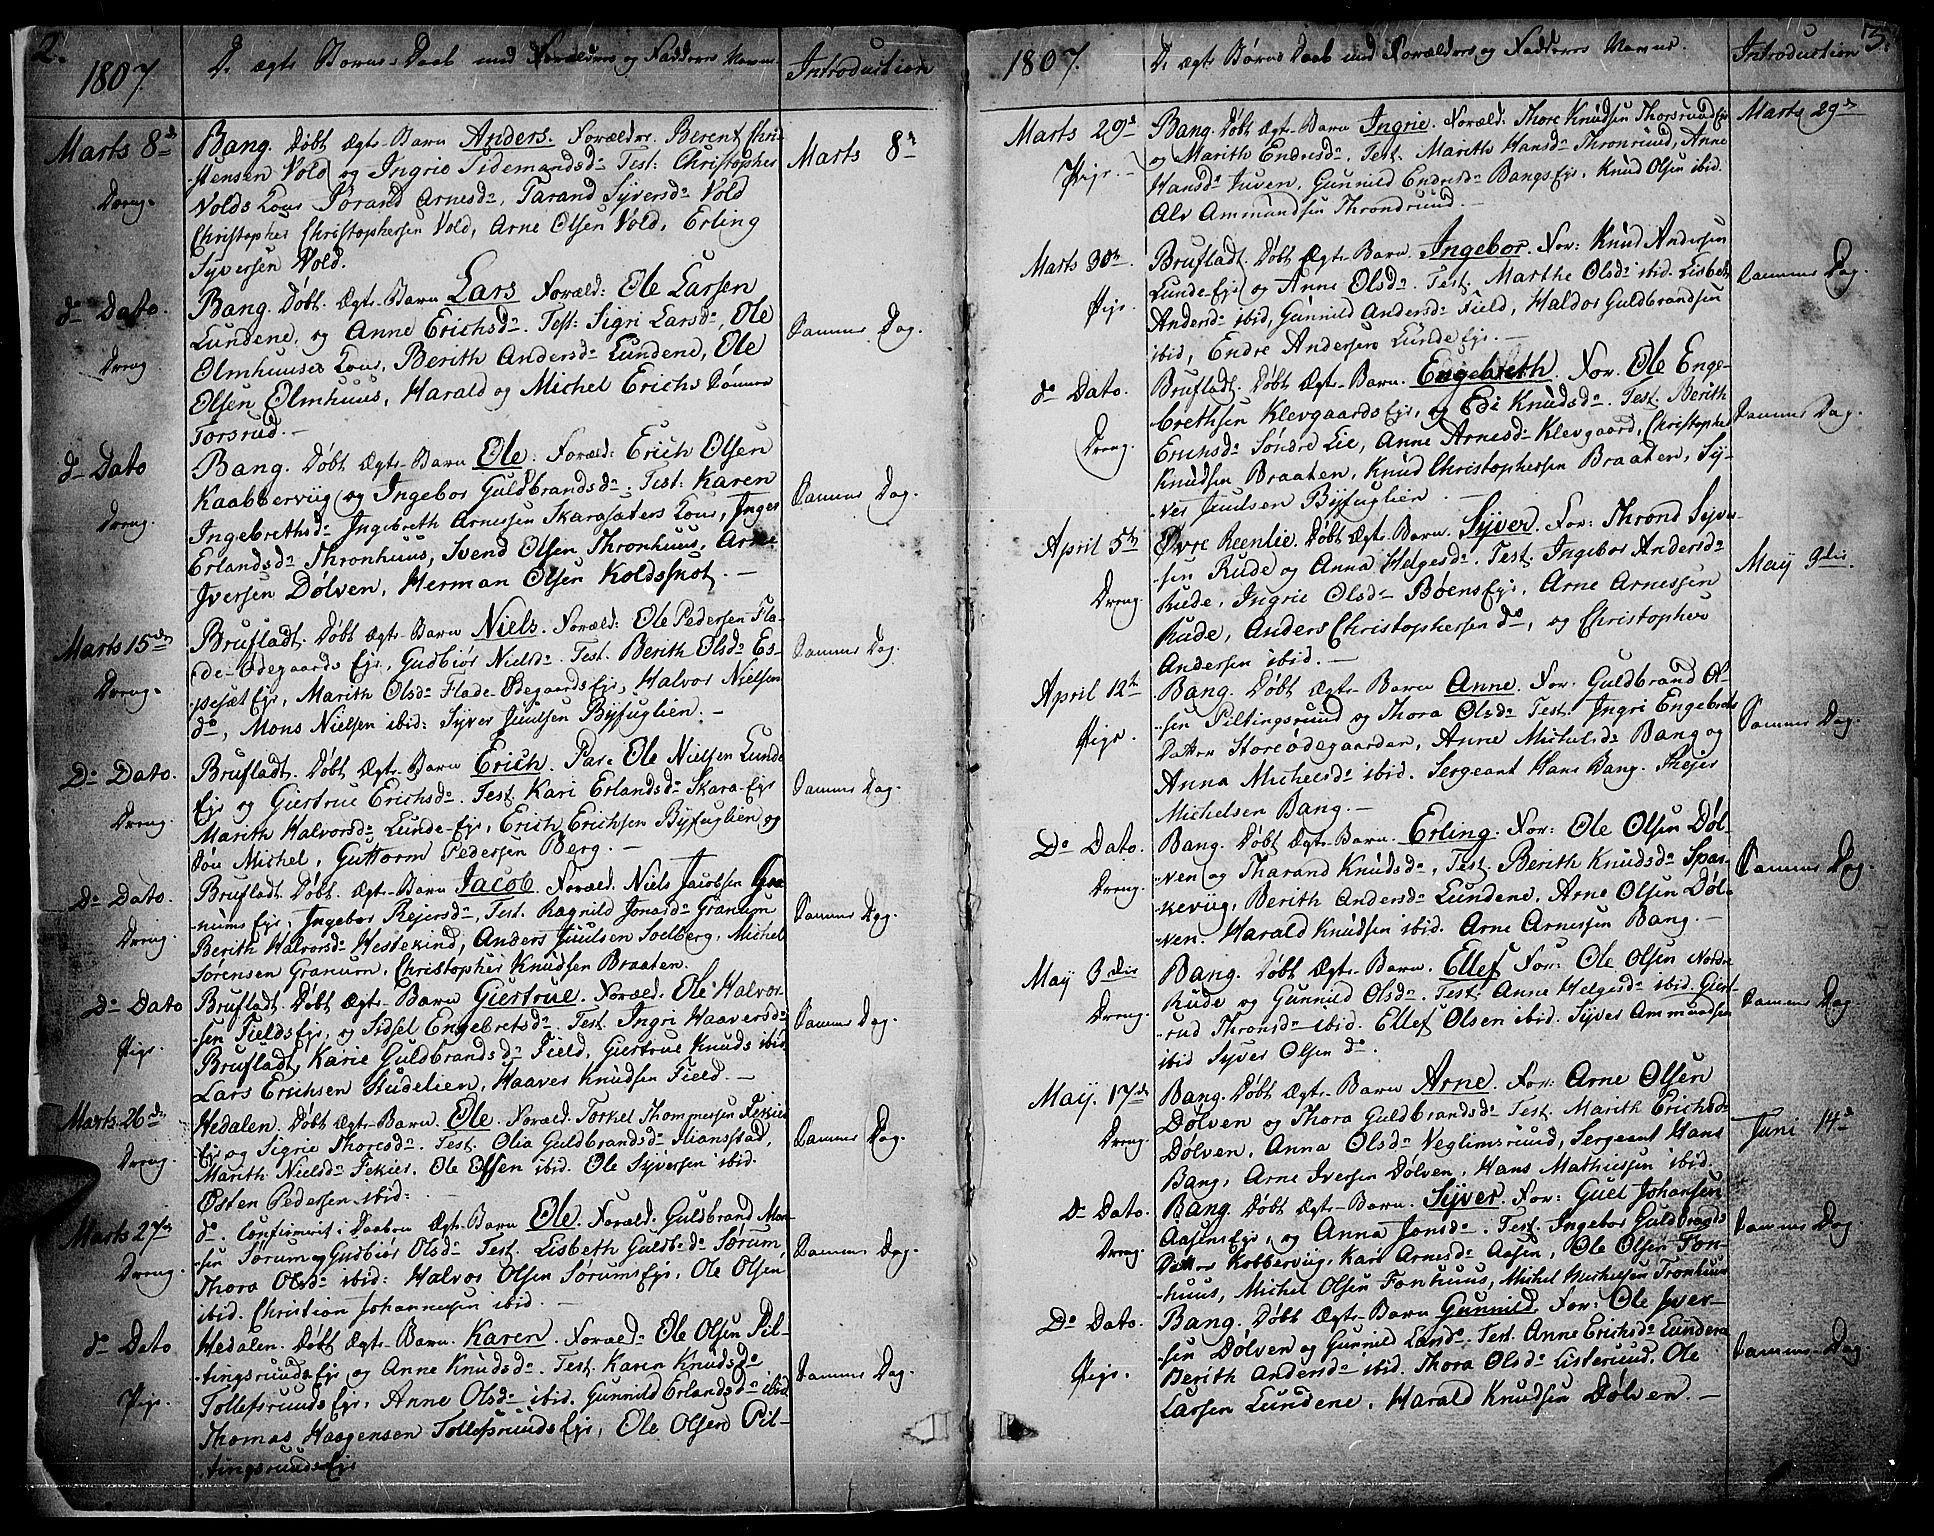 2.
1807.
De ægte Børns Daab med Forældres og Fadderes Navne.
Introduction
Marts 8de
Dreng.
Bang. Døbt Ægte Barn Anders. Forældre. Berent Chri-
stensen Vold og Ingrie Tidemandsdr Test: Christopher
Volds Kone Jorand Arnesdr, Tarand Syversdr Vold
Christopher Christophersen Vold, Arne Olsen Vold, Erling
Syversen Vold.
Marts 8de
do Dato.
Dreng.
Bang. Døbt. Ægte Barn Lars Foræld: Ole Larsen
Lundene, og Anne Erichsdr. Test: Sigri Larsdr, Ole
Olmhuuses Kone, Berith Andersdr Lundene, Ole
Olsen Olmhuus, Harald og Michel Erichs Sønner
Forsrud. —
Samme Dag.
do Dato
Dreng.
Bang. Døbt Ægte Barn Ole. Foræld: Erich Olsen
Kaabberviig og Ingebor Guldbrandsdr. Test: Karen
Ingebrethsdr Ingebreth Arnesen Skarasæters Kone, Inger
Erlandsdr Thronhuus, Svend Olsen Thronhuus, Arne
Iversen Dølven, Herman Olsen Koldsskot. —
Samme Dag.
Marts 15de
Dreng.
Brufladt. Døbt Ægte Barn Niels. Foræld: Ole Pedersen Fla-
de-Ødegaards Eje, Gudbiør Nielsdr. Test. Berith Olsdr Es-
pesæt Eje, Marith Olsdr Flade-Ødegaards Eje, Halvor Nielsen
do, Mons Nielsen ibid: Syver Juulsen Byfuglien. —
Samme Dag.
Do Dato.
Dreng.
Brufladt. Døbt Ægte Barn Erich. Par. Ole Nielsen Lunde
Eje og Giertrue Erichsdr. Test. Kari Erlandsdr Skara-Eje
Marith Halvorsdr Lunde-Eje, Erich Erichsen Byfuglien og
Søn Michel, Guttorm Pedersen Berg. —
Samme Dag.
Do Dato.
Dreng.
Brufladt. Døbt Ægte Barn Jacob. Foræld. Niels Jacobsen Gra-
nums Eje, Ingebor Rejersdr, Test. Ragnild Jonasdr Granum
Berith Halvorsdr Hestekind, Anders Juulsen Soelberg, Michel
Sørensen Granum, Christopher Knudsen Braaten.
Samme Dag.
Do Dato
Pige.
Brufladt. Døbt Ægte Barn Giertrue. Foræld. Ole Halvor-
sen Fields Eje, og Sidsel Engebretsdr. Test. Ingri Haaversdr
Brufladt, Karie Guldbrandsdr Field, Giertrue Knuds ibid
Lars Erichsen Studelien, Haaver Knudsen Field. —
Samme Dag.
Marts 26de
Dreng.
Hedalen. Døbt Ægte Barn. Ole. Foræld: Torkel Thommesen Fekies
Eje og Sigrie Thoresdr. Test. Olia Guldbrandsdr Ilianstad,
Marith Nielsdr Fekies, Ole Olsen ibid. Ole Syversen ibid.
Østen Pedersen ibid:
Samme Dag.
Marts 27de
Dreng.
do. Confirmeret i Daaben Ægte Barn Ole. Foræld: Guldbrand Mon-
sen Sørum og Gudbiør Olsdr Test. Lisbeth Guldbdr Sørum
Thora Olsdr ibid: Halvor Olsen Sørums Eje, Ole Olsen
ibid. Christian Johannesen ibid. —
Samme Dag.
do Dato
Pige.
Hedalen. Døbt Ægte Barn. Karen. Foræld: Ole Olsen Pil-
tingsruuds Eje og Anne Knudsdr. Test. Karen Knudsdr
Tollefsruuds Eje, Anne Olsdr ibid. Gunnild Erlandsdr ibid
Thomas Haagensen Tollefsruuds Eje, Ole Olsen Pil-
tingsruuds Eje
Samme Dag.
3.
1807.
De ægte Børns Daab med Forældres og Fadderes Navne.
Introduction
Marts 29de
Pige.
Bang. Døbt Ægte Barn Ingrie. Foræld. Thore Knudsen Thorsruud Eje
og Marith Endresdr. Test. Marith Hansdr Thronruud, Anne
Hansdr Juven, Gunnild Endresdr Bangs Eje, Knud Olsen ibid.
Alv Ammundsen Throndruud. —
Marts 29de
Marts 30te.
Pige.
Brufladt. Døbt Ægte Barn. Ingebor. For: Knud Andersen
Lunde Eje og Anne Olsdr. Test. Marthe Olsdr ibid. Lisbeth
Andersdr ibid, Gunnild Andersdr Field, Haldor Guldbrandsen
ibid, Endre Andersen Lunde Eje. —
Samme Dag.
do Dato.
Dreng.
Brufladt. Døbt Ægte Barn. Engebreth. For. Ole Enge-
brethsen Klevgaards Eje, og Edi Knudsdr. Test. Berith
Erichsdr Søndre Lie, Anne Arnesdr Klevgaard, Christopher
Knudsen Braaten, Knud Christophersen Braaten, Sy-
ver Juulsen Byfuglien. —
Samme Dag.
April 5te
Dreng.
Øvre Reenlie. Døbt Ægte Barn. Syver. For: Thrond Syver-
sen Rude og Anna Helgesdr. Test. Ingebor Andersdr
Rude, Ingrie Olsdr Bøens Eje, Arne Arnessen
Rude, Anders Christophersen do, og Christopher
Andersen ibid. —
May 9de.
April 12te
Pige.
Bang. Døbt Ægte Barn Anne. For. Guldbrand Ol-
sen Piltingsruud og Thora Olsdr Test. Ingri Engebrets
Datter Storeødegaarden, Anne Michelsdr Bang og
Anna Michelsdr ibid. Sergeant Hans Bang. Thejer
Michelsen Bang. —
Samme Dag.
Do Dato.
Dreng.
Bang. Døbt Ægte Barn. Erling. For: Ole Olsen Døl-
ven og Tharand Knudsdr, Test. Berith Knudsdr Spar-
keviig, Berith Andersdr Lundene, Arne Olsen Døl-
ven. Harald Knudsen ibid. Arne Arnesen Bang. —
Samme Dag.
May 3die
Dreng.
Bang. Døbt Ægte Barn. Ellef For: Ole Olsen Nordre
Rude og Gunnild Olsdr. Test. Anne Helgesdr ibid. Giert-
rud Thronsdr ibid. Ellef Olsen ibid. Syver Ammundsen
ibid Syver Olsen do.
Samme Dag.
May. 17de
Dreng.
Bang. Døbt Ægte Barn Arne. For: Arne Olsen
Dølven og Thora Guldbrandsdr Test. Marith Erichsdr
Dølven, Anna Olsdr Veglimsruud, Sergeant Hans
Bang, Arne Iversen Dølven, Hans Mathiessen ibid.
Juni 14de
Do Dato.
Dreng.
Bang. Døbt Ægte Barn. Syver. For: Guel Johansen
Aasens Eje, og Anna Jonsdr. Test. Ingebor Guldbrands
Datter Kobberviig, Kari Arnesdr Aasen, Ole Olsen Fon-
huus, Michel Olsen Fonhuus, Michel Michelsen Tronhuus
Samme Dag.
Do Dato.
Pige.
Bang. Døbt Ægte Barn Gunnild. For: Ole Iver-
sen Dølven og Gunnild Larsdr. Test. Anne Erichsdr Lundene
Berith Andersdr ibid. Thora Olsdr Listeruud. Ole
Larsen Lundene, Harald Knudsen Dølven. —
Samme Dag.